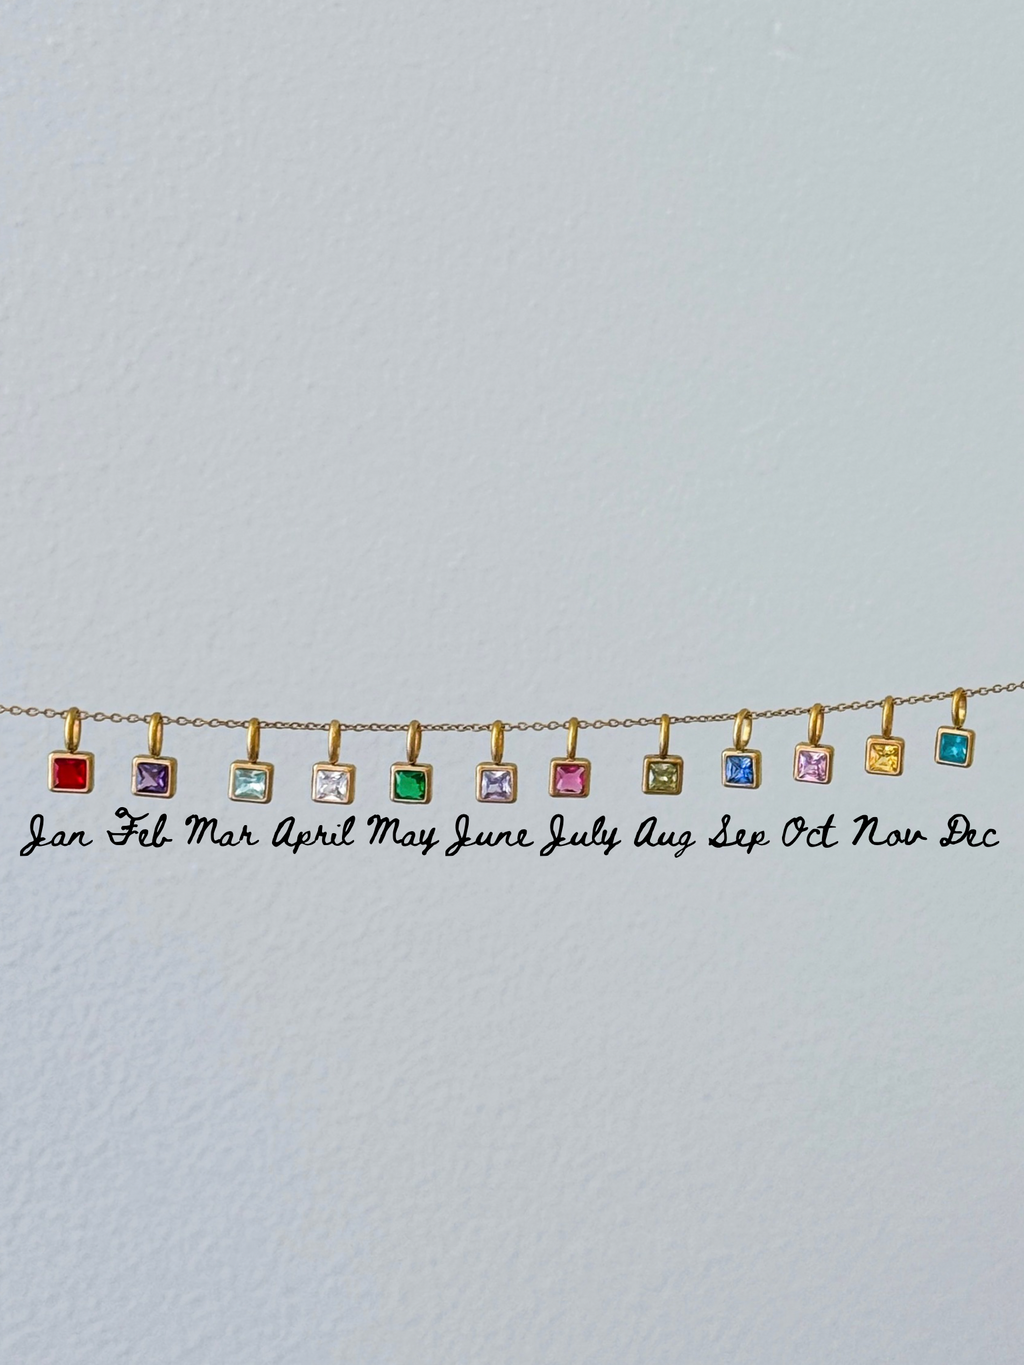 Jan Feb Mar April May June July Aug Sep Oct Nov Dec